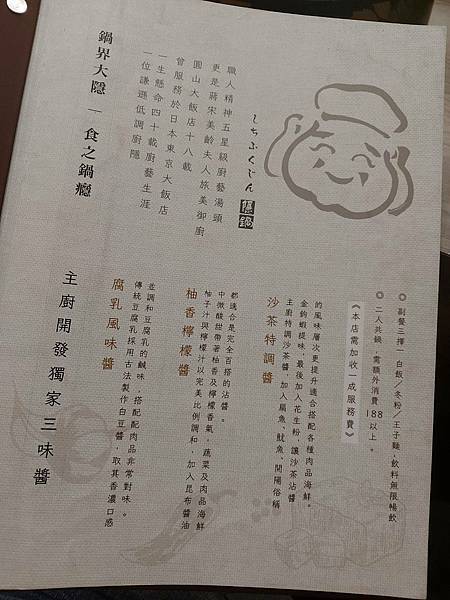 鍋界大隱 — 食之鍋癮
一位謙遜低調廚隱
一生懸命四十載廚藝生涯
曾服務於日本東京大飯店
圓山大飯店十八載
更是蔣宋美齡夫人旅美御廚
職人精神五星級廚藝湯頭
しちふくじん
主廚開發獨家三味醬
腐乳風味醬
傳統豆腐乳採用古法製作白豆醬，取其香濃口感
並調和豆腐乳的鹹味，搭配配肉品非常對味。
柚香檸檬醬
柚子汁與檸檬汁以完美比例調和，加入昆布醬油
中微酸甜帶著柚香及檸檬香氣，蔬菜及肉品海鮮
都適合是完全百搭的沾醬。
沙茶特調醬
主廚特調沙茶醬，加入扁魚、魷魚、開陽俗稱
金鉤蝦提味，最後加入花生粉，讓沙茶沾醬
的風味層次更提升適合搭配各種肉品海鮮。
《本店需加收一成服務費》
◎ 二人共鍋，需額外消費188以上。
◎ 副餐三擇一 白飯／冬粉／王子麵，飲料無限暢飲